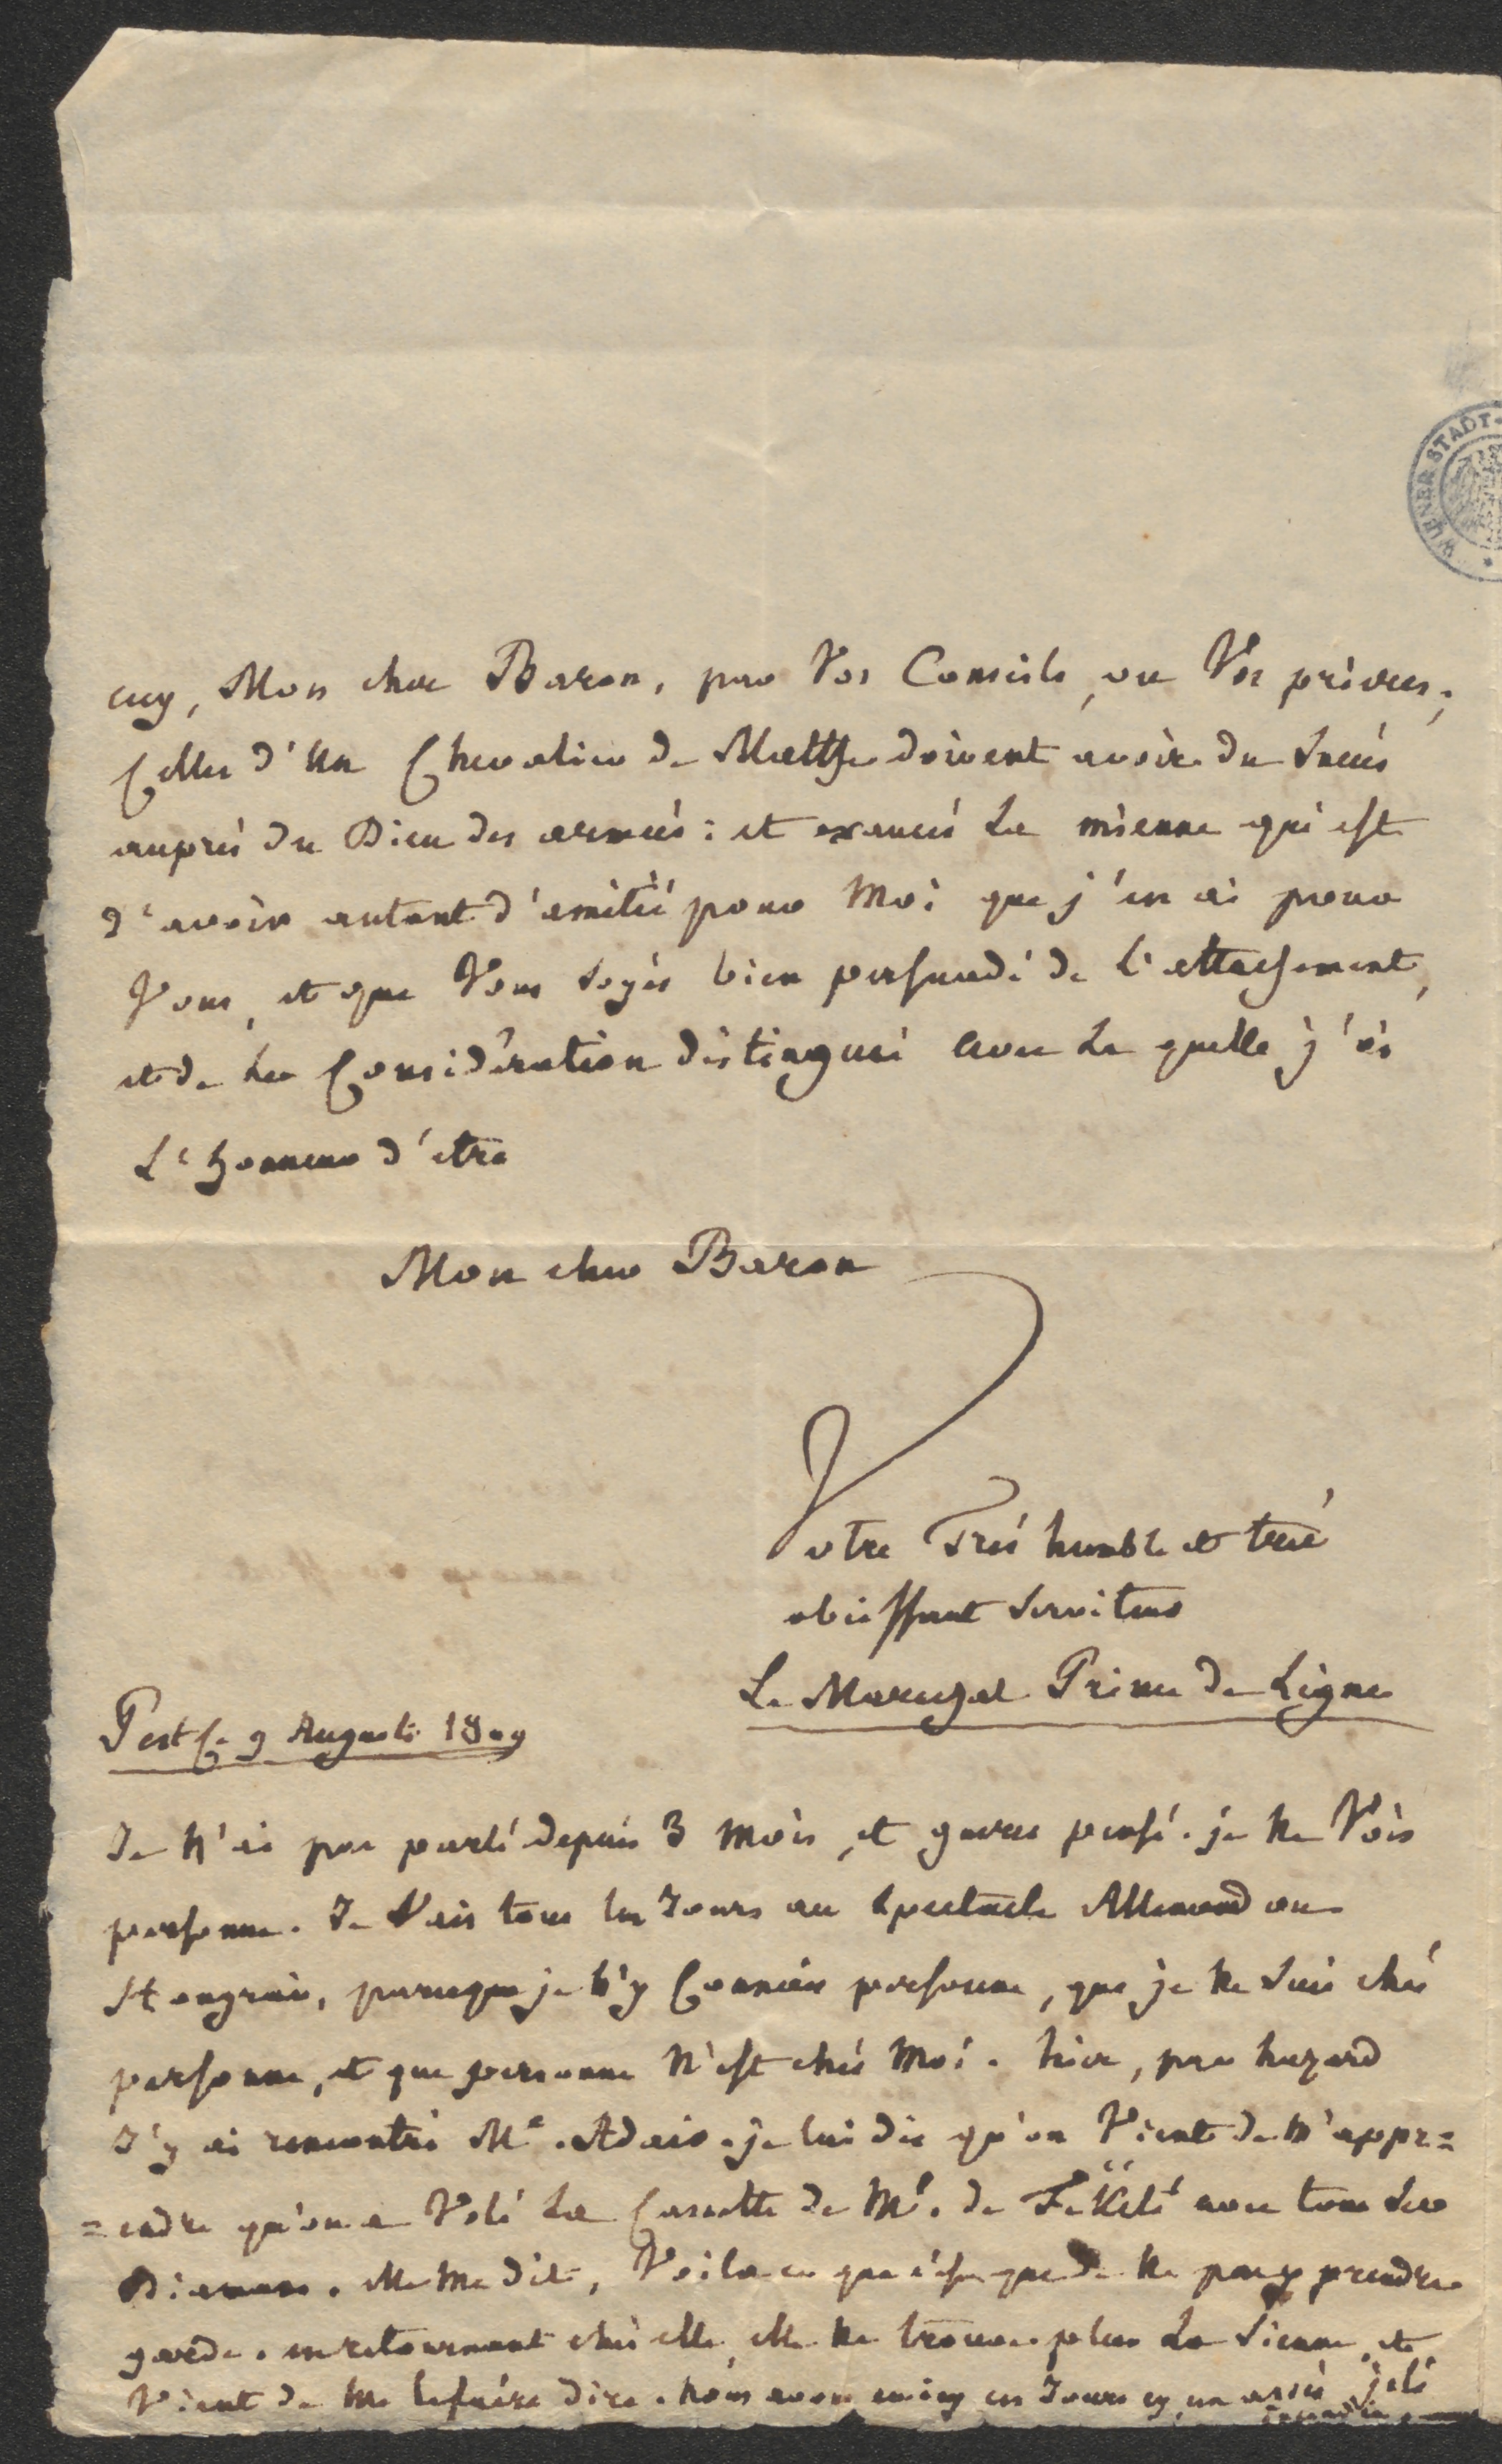 WIENER STADT-
cuy, Mon cher Baron, par Vos Conseils, ou Vos prieres;
Celles d'un Chevalier de Malthe doivent avoir du Succés
auprés du Dieu des armées: et exaucés la mienne qui est
d'avoir autant d'amitié pour Moi que j'en ai pour
Vous, et que Vous soyés bien persuadé de l'attachement,
et de la Considération distinguée avec la quelle j'ai
L'honneur d'etre
Mon cher Baron
Votre Trés humble et trés
obeissant Serviteur
Le Marechal Prince de Ligne
Pest Ce 9 Auguste 1809
Je n'ai pas parlé depuis 3 mois, et guere pensé. je ne Vois
personne. Je Vais tous les Jours au Spectacle Allemand ou
Hongrois, parceque je n'y Connois personne, que je ne suis chés
personne, et que personne n'est chés Moi. hier, par hazard
J'y ai rencontré Me. Adair. je lui dis qu'on Vient de m'appr=
=endre qu'on a Volé la Cassette de Me. de Fekété avec tous ses
Diamans. elle me dit, Voila ce que c'est que de ne pas prendre
garde. en retournant chés elle, elle ne trouve plus la Sienne, et
Vient de me le faire dire. nous avons eu ces Jours cy, un assés joli